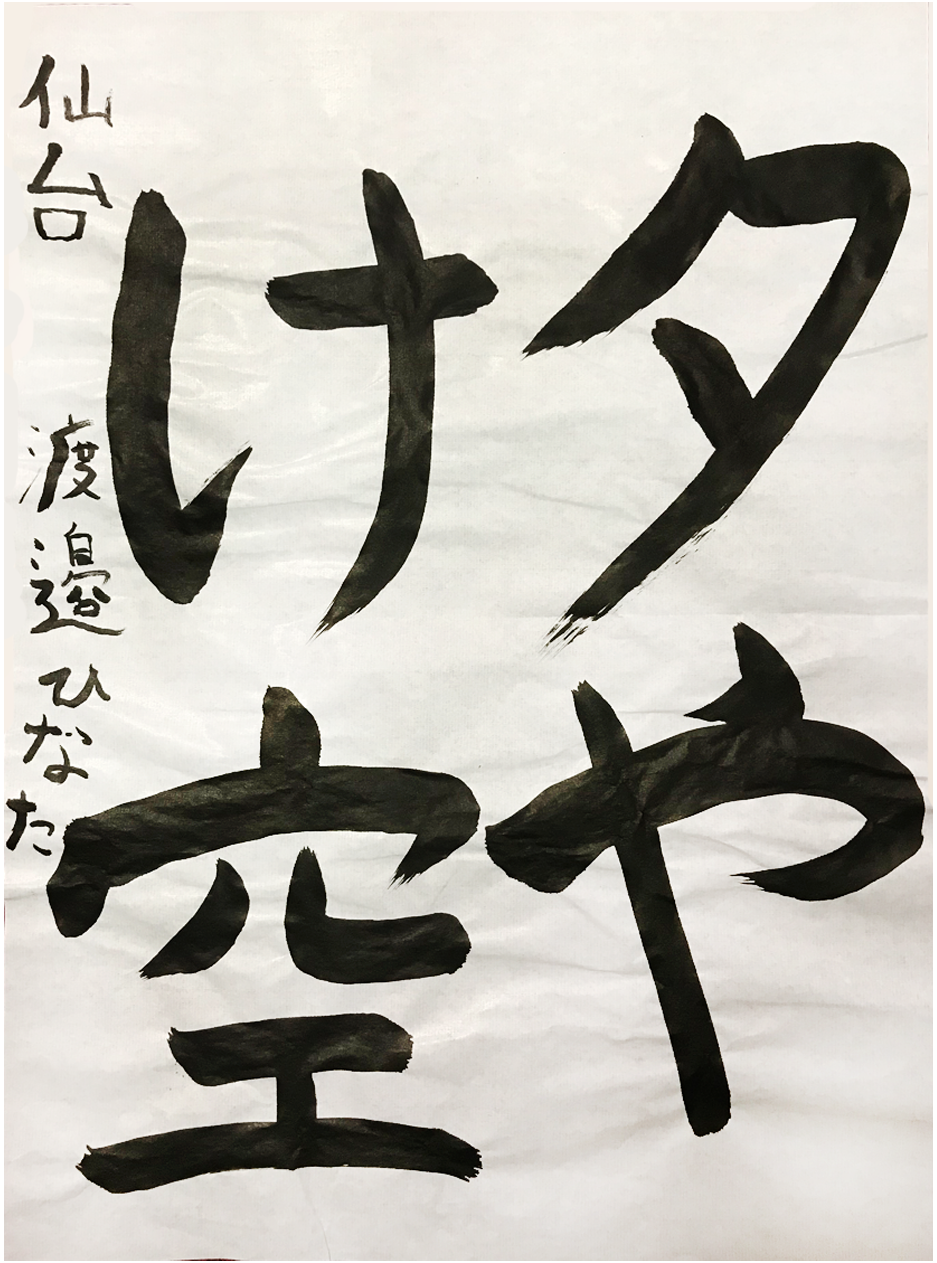 夕や
け空
仙台 渡邉ひなた